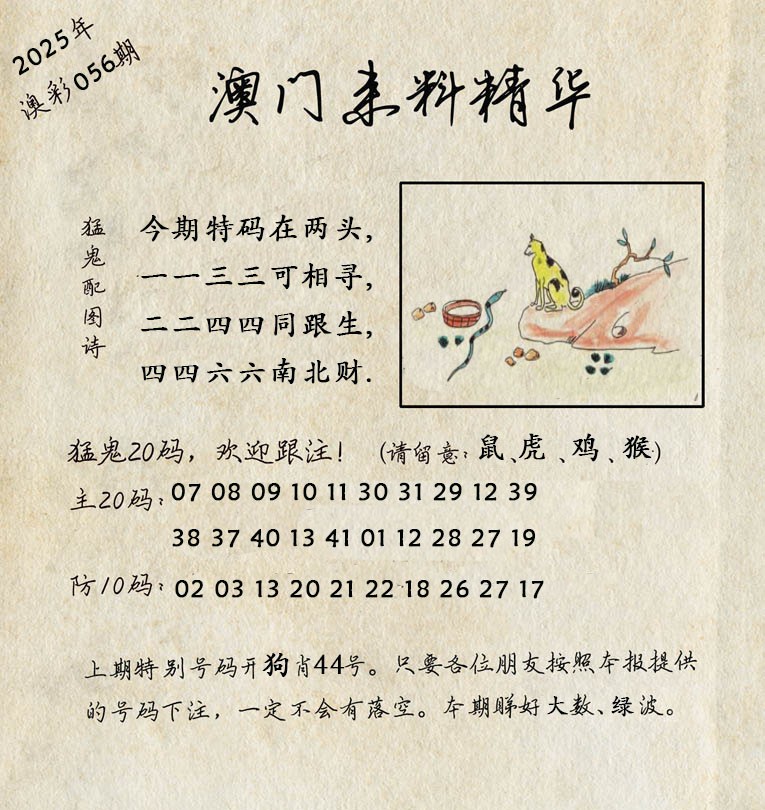 2025年
澳彩056期
澳门来料精华
猛鬼配图诗
今期特码在两头,
一一三三可相寻,
二二四四同跟生,
四四六六南北财.
猛鬼20码，欢迎跟注！（请留意：鼠、虎、鸡、猴）
主20码：07 08 09 10 11 30 31 29 12 39
38 37 40 13 41 01 12 28 27 19
防10码：02 03 13 20 21 22 18 26 27 17
上期特别号码开狗肖44号。只要各位朋友按照本报提供
的号码下注，一定不会有落空。本期睇好大数、绿波。